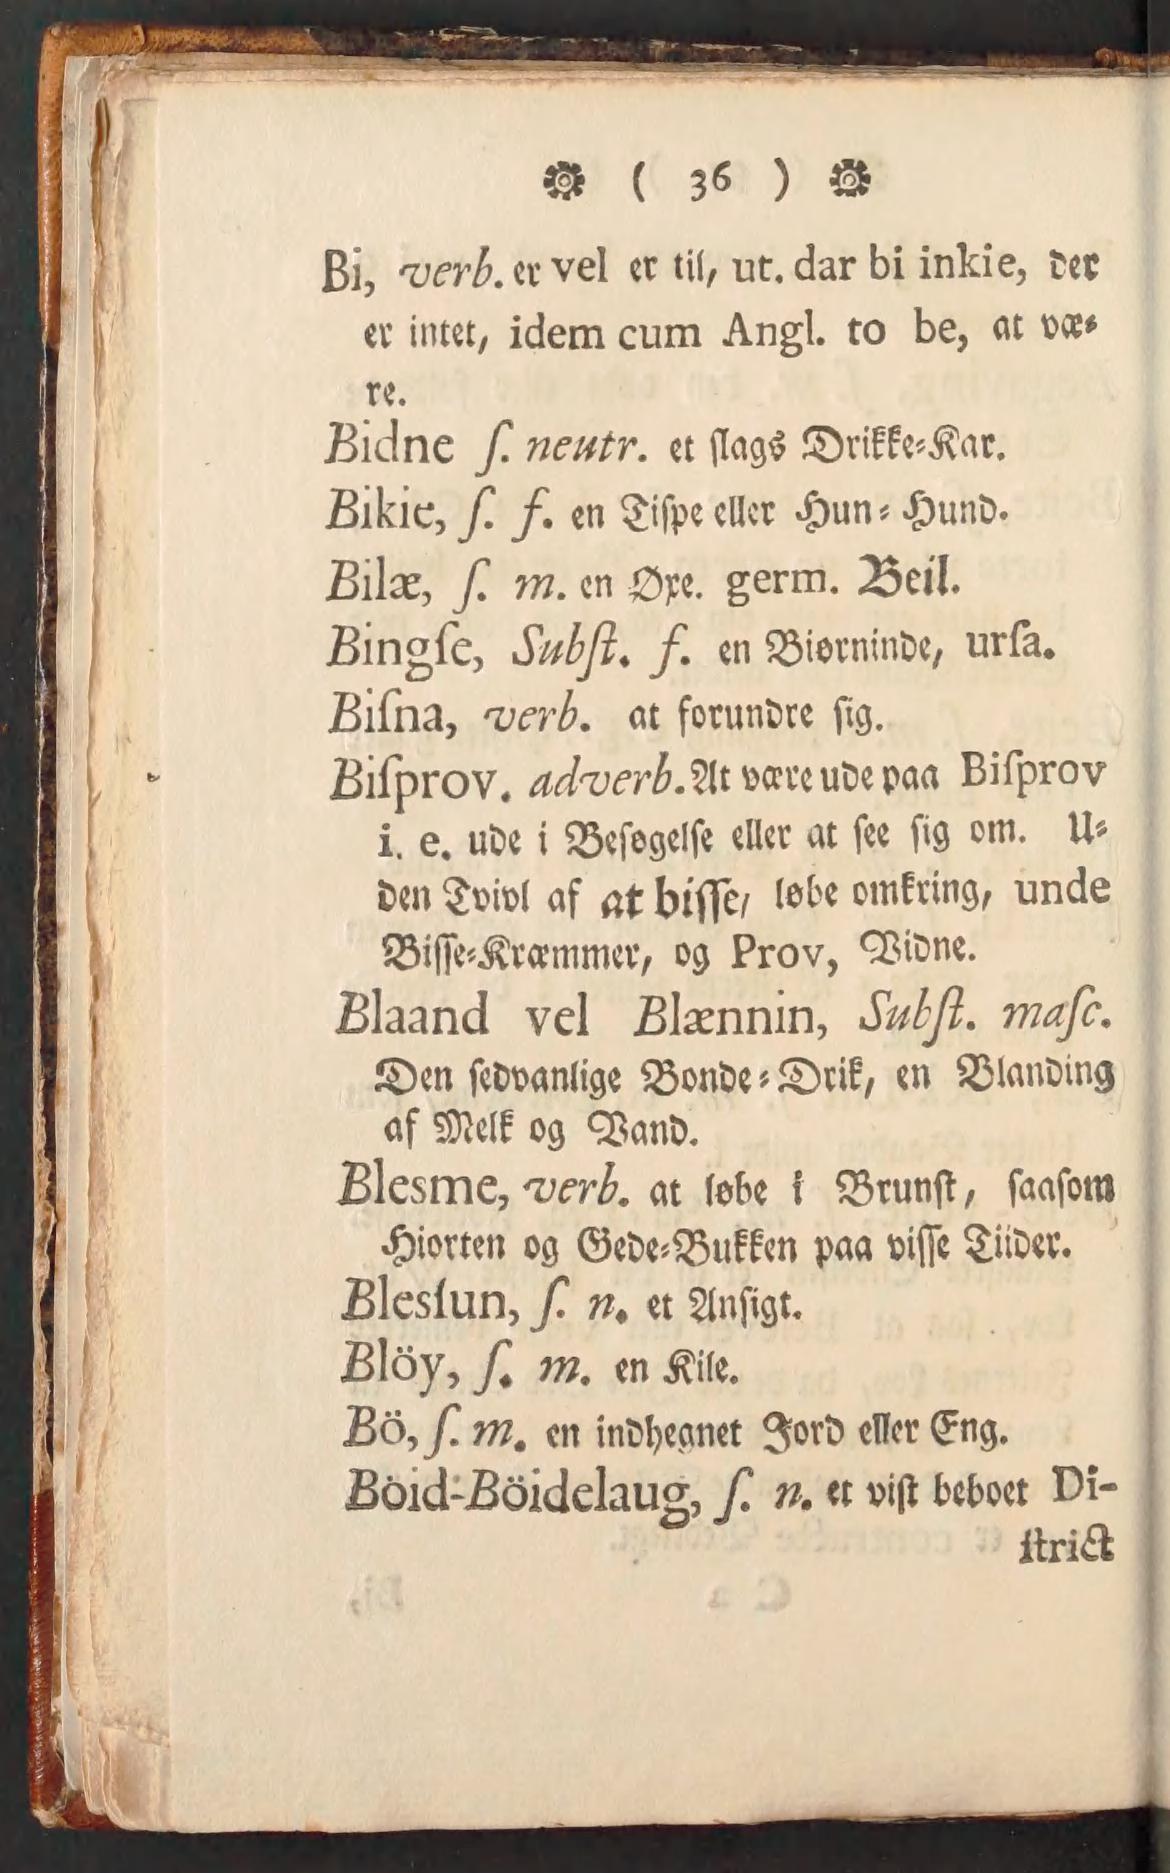 ( 36 )
Bi, verb. er vel er til, ut. dar bi inkie, der
er intet, idem cum Angl. to be, at væ⸗
re.
Bidne ſ. neutr. et ſlags Drikke⸗Kar.
Bikie, ſ. f. en Tiſpe eller Hun⸗Hund.
Bilæ, ſ. m. en Øxe. germ. Beil.
Bingſe, Subſt. f. en Biørninde, urſa.
Biſna, verb. at forundre ſig.
Biſprov. adverb. At være ude paa Biſprov
i. e. ude i Beſøgelſe eller at ſee ſig om. U⸗
den Tvivl af at biſſe, løbe omkring, unde
Biſſe⸗Kræmmer, og Prov, Vidne.
Blaand vel Blænnin, Subſt. maſc.
Den ſedvanlige Bonde⸗Drik, en Blanding
af Melk og Vand.
Blesme, verb. at løbe i Brunſt, ſaaſom
Hiorten og Gede⸗Bukken paa viſſe Tiider.
Bleslun, ſ. n. et Anſigt.
Blöy, ſ. m. en Kile.
Bö, ſ. m. en indhegnet Jord eller Eng.
Böid-Böidelaug, ſ. n. et viſt beboet Di-
ſtrict